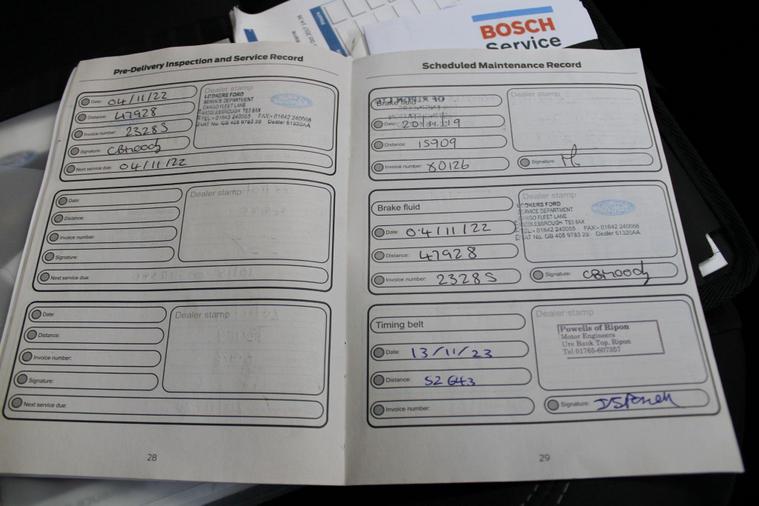 BOSCH
Service
Pre-Delivery Inspection and Service Record
Date: 04/11/22
Distance: 47928
Invoice number: 2328S
Signature:
Next service due: 04/11/22
Dealer stamp
LOOKERS FORD
SERVICE DEPARTMENT
CARGO FLEET LANE
MIDDLESBROUGH TS3 8AX
TEL:- 01642 240055 FAX:- 01642 240068
VAT No. GB 405 9783 29 Dealer 51320AA
Date:
Distance:
Invoice number:
Signature:
Next service due:
Dealer stamp
Date:
Distance:
Invoice number:
Signature:
Next service due:
Dealer stamp
28
Scheduled Maintenance Record
Date: 20/11/19
Distance: 15909
Invoice number: X0126
Dealer stamp
Signature:
Brake fluid
Date: 04/11/22
Distance: 47928
Invoice number: 2328S
Dealer stamp
LOOKERS FORD
SERVICE DEPARTMENT
CARGO FLEET LANE
MIDDLESBROUGH TS3 8AX
TEL:- 01642 240055 FAX:- 01642 240068
VAT No. GB 405 9783 29 Dealer 51320AA
Signature:
Timing belt
Date: 13/11/23
Distance: 52643
Invoice number:
Dealer stamp
Powells of Ripon
Motor Engineers
Ure Bank Top, Ripon
Tel: 01765-607857
Signature:
29